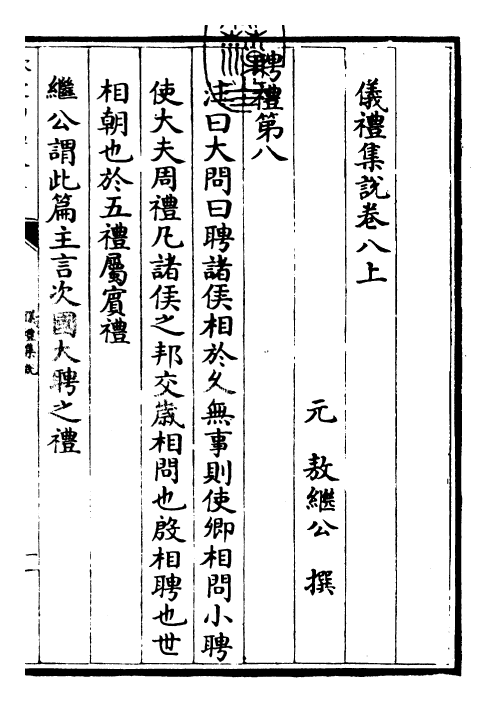 儀禮集說卷八上
元 敖繼公 撰
聘禮第八
注曰大問曰聘諸侯相於久無事則使卿相問小聘
使大夫周禮凡諸侯之邦交歲相問也殷相聘也世
相朝也於五禮屬賓禮
繼公謂此篇主言次國大聘之禮
儀禮集說